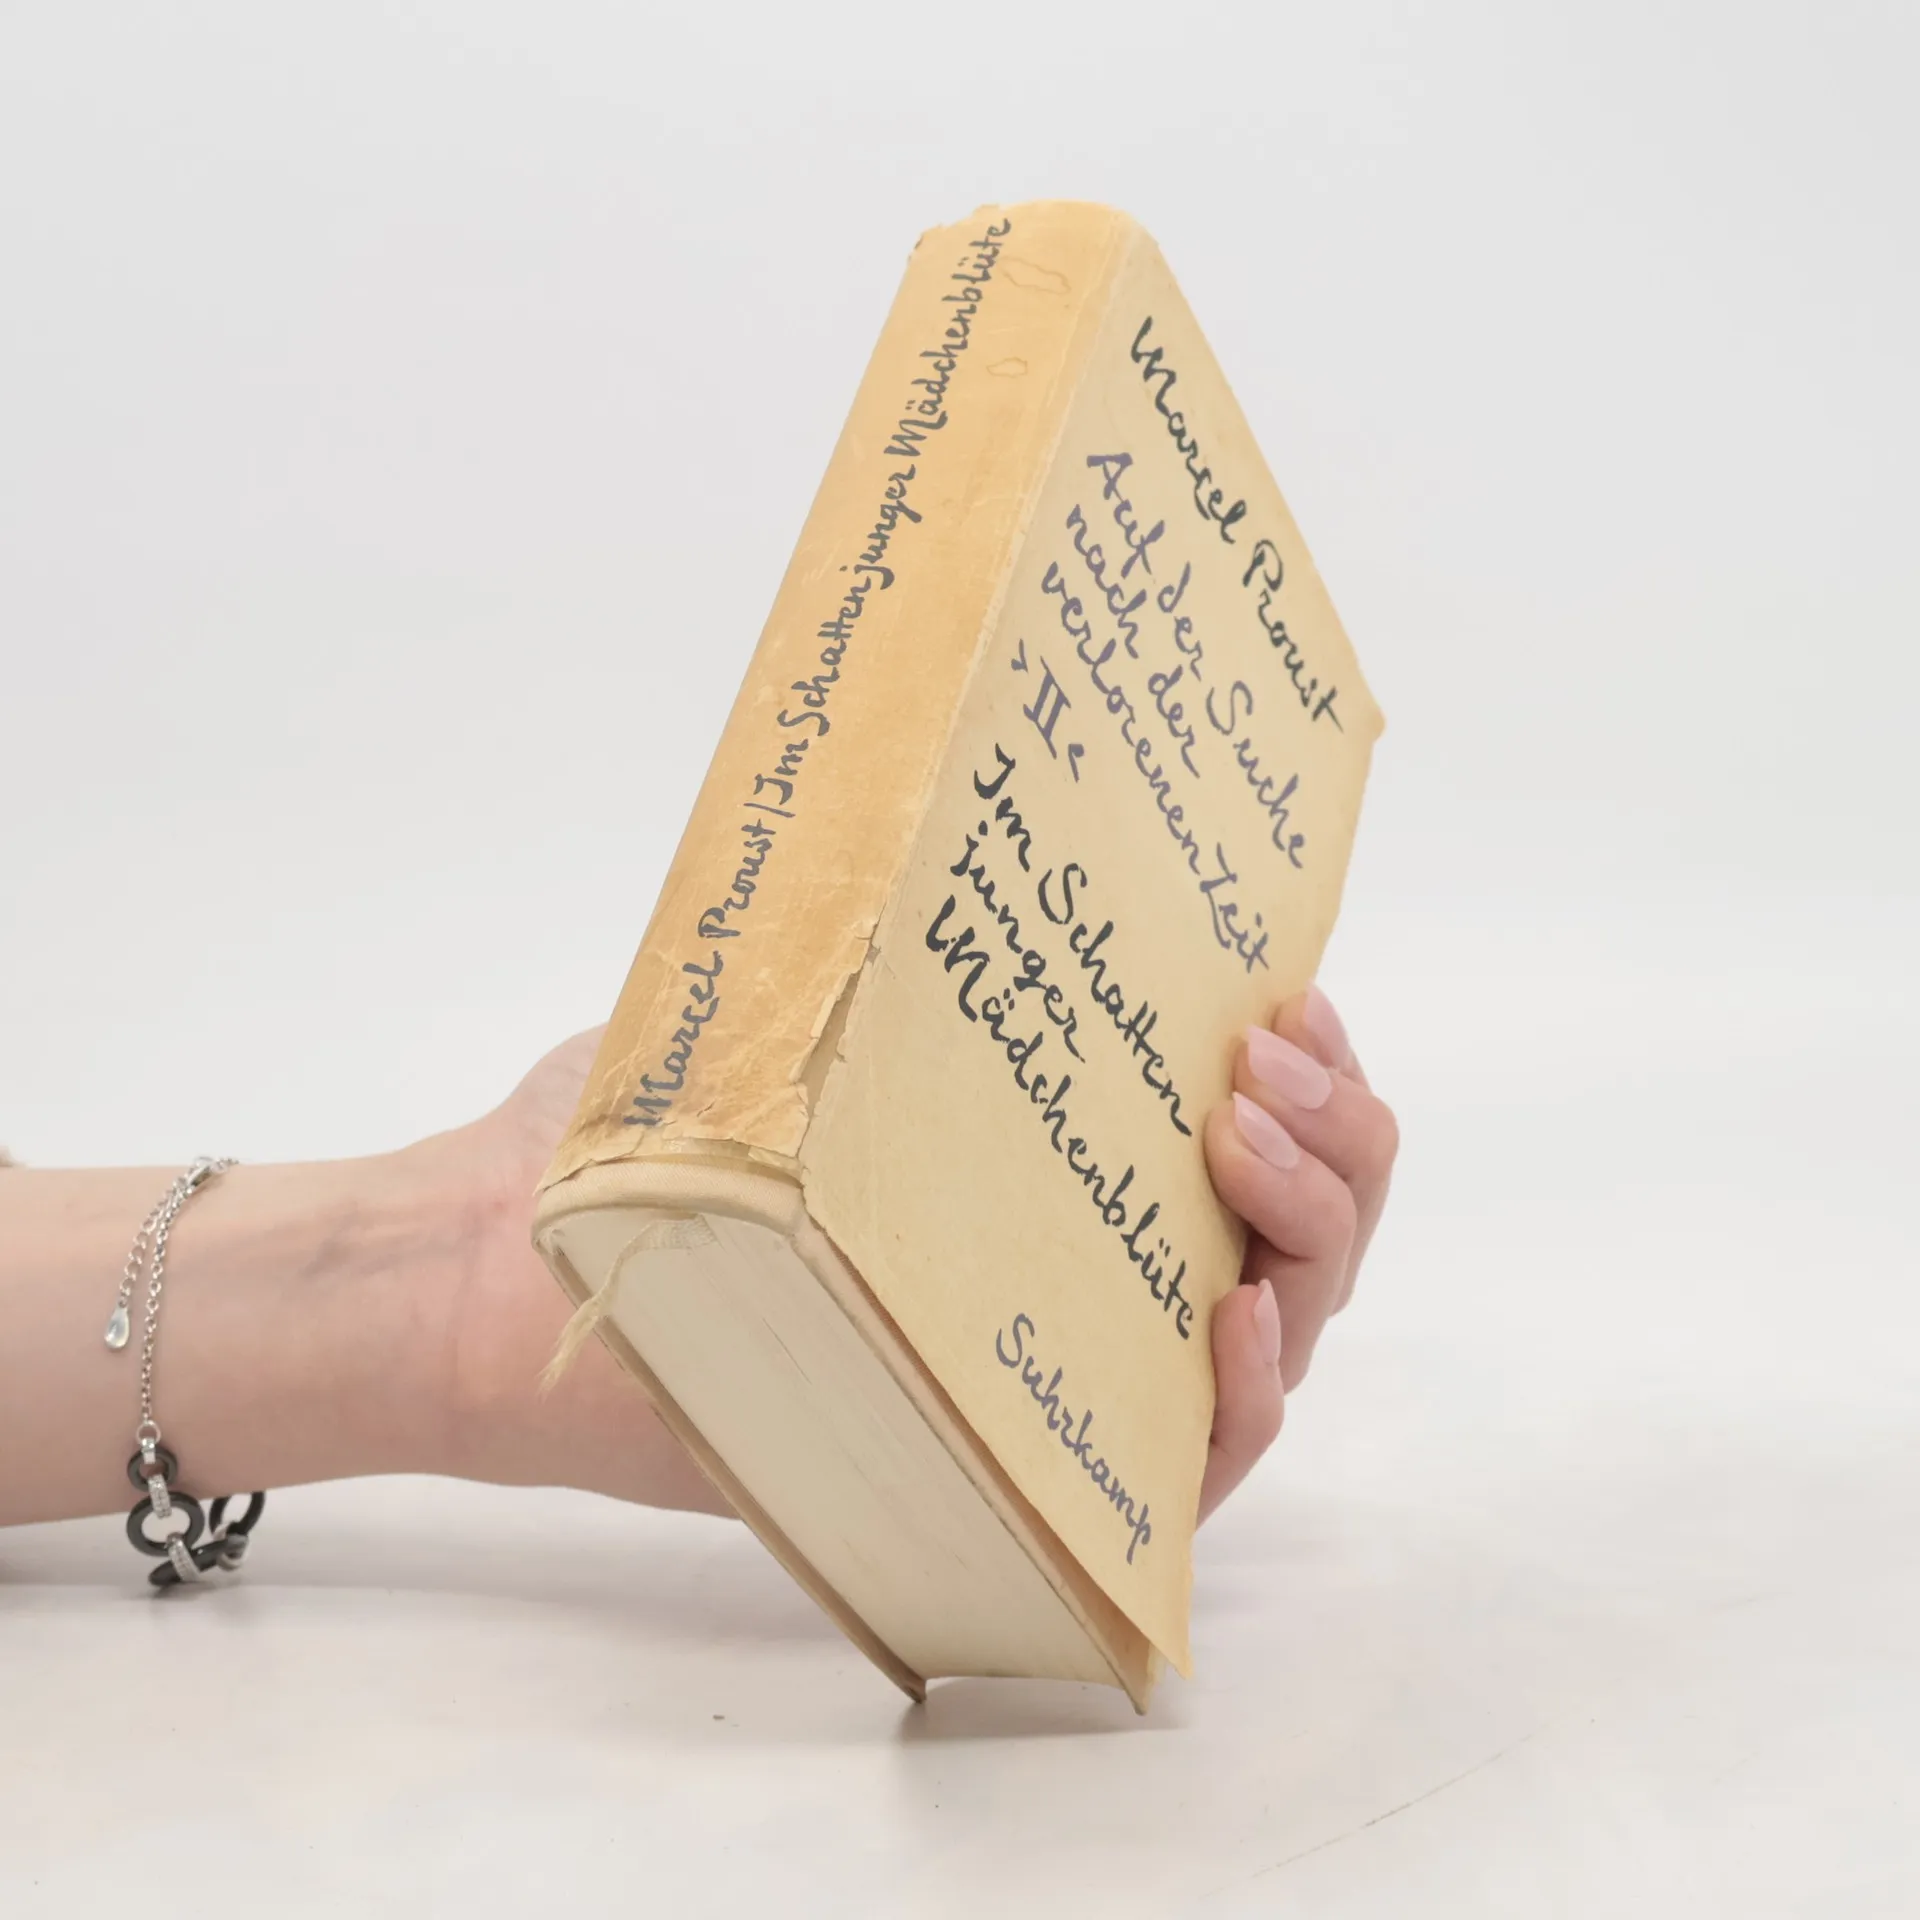 Marcel Proust / Im Schatten junger Mädchenblüte
Marcel Proust
Auf der Suche
nach der
verlorenen Zeit
›II‹
Im Schatten
junger
Mädchenblüte
Suhrkamp